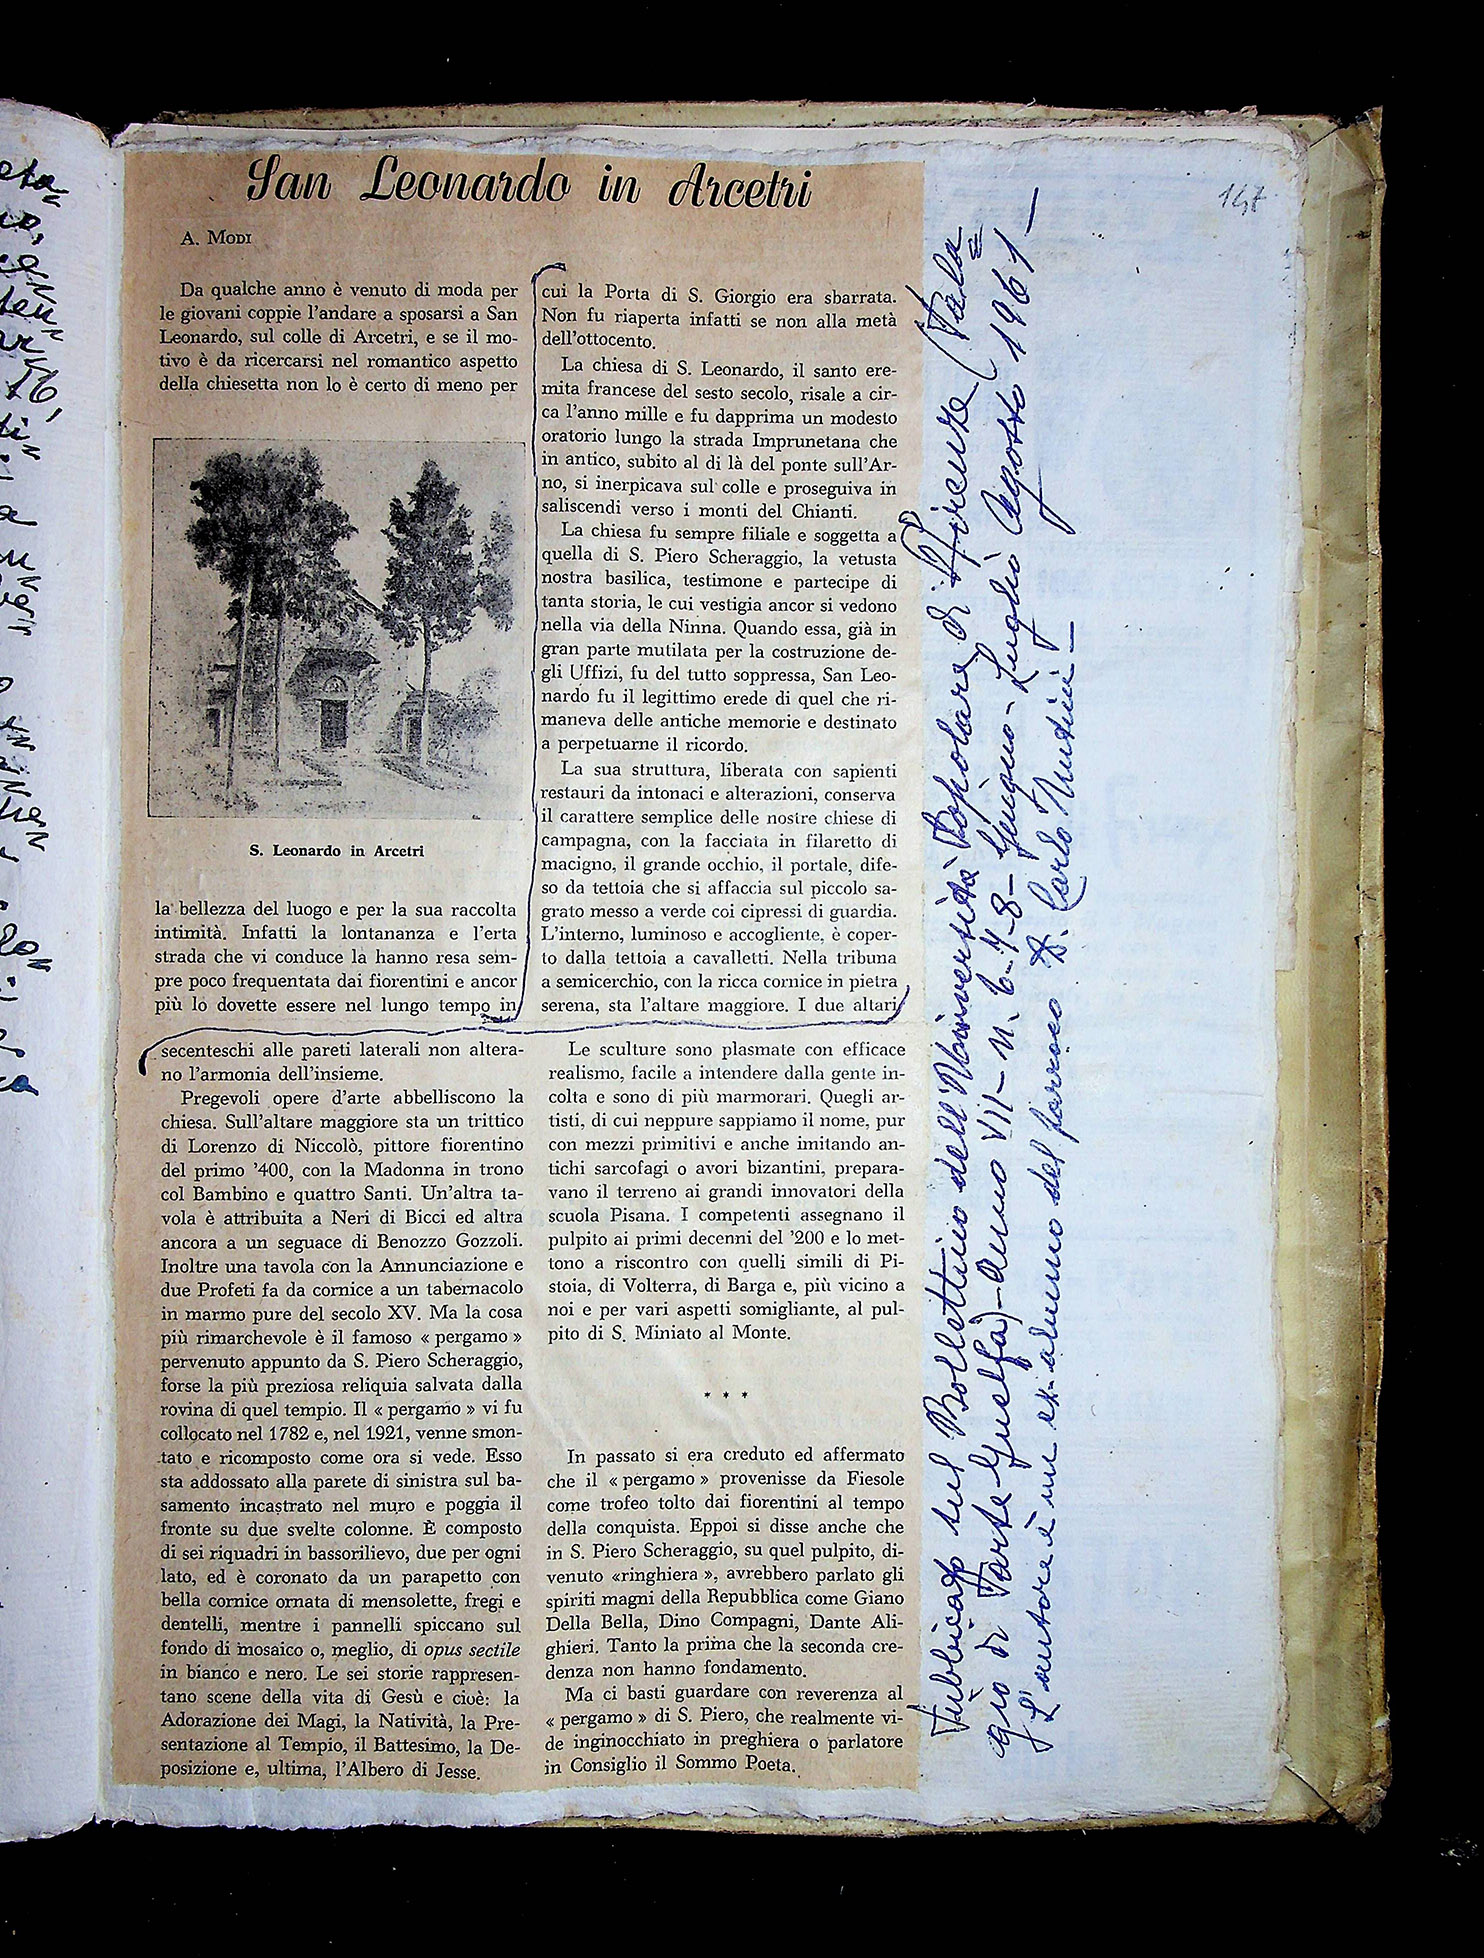 147
San Leonardo in Arcetri
A. MODI
Da qualche anno è venuto di moda per
le giovani coppie l'andare a sposarsi a San
Leonardo, sul colle di Arcetri, e se il mo-
tivo è da ricercarsi nel romantico aspetto
della chiesetta non lo è certo di meno per
S. Leonardo in Arcetri
la bellezza del luogo e per la sua raccolta
intimità. Infatti la lontananza e l'erta
strada che vi conduce la hanno resa sem-
pre poco frequentata dai fiorentini e ancor
più lo dovette essere nel lungo tempo in
cui la Porta di S. Giorgio era sbarrata.
Non fu riaperta infatti se non alla metà
dell'ottocento.
La chiesa di S. Leonardo, il santo ere-
mita francese del sesto secolo, risale a cir-
ca l'anno mille e fu dapprima un modesto
oratorio lungo la strada Imprunetana che
in antico, subito al di là del ponte sull'Ar-
no, si inerpicava sul colle e proseguiva in
saliscendi verso i monti del Chianti.
La chiesa fu sempre filiale e soggetta a
quella di S. Piero Scheraggio, la vetusta
nostra basilica, testimone e partecipe di
tanta storia, le cui vestigia ancor si vedono
nella via della Ninna. Quando essa, già in
gran parte mutilata per la costruzione de-
gli Uffizi, fu del tutto soppressa, San Leo-
nardo fu il legittimo erede di quel che ri-
maneva delle antiche memorie e destinato
a perpetuarne il ricordo.
La sua struttura, liberata con sapienti
restauri da intonaci e alterazioni, conserva
il carattere semplice delle nostre chiese di
campagna, con la facciata in filaretto di
macigno, il grande occhio, il portale, dife-
so da tettoia che si affaccia sul piccolo sa-
grato messo a verde coi cipressi di guardia.
L'interno, luminoso e accogliente, è coper-
to dalla tettoia a cavalletti. Nella tribuna
a semicerchio, con la ricca cornice in pietra
serena, sta l'altare maggiore. I due altari
secenteschi alle pareti laterali non altera-
no l'armonia dell'insieme.
Pregevoli opere d'arte abbelliscono la
chiesa. Sull'altare maggiore sta un trittico
di Lorenzo di Niccolò, pittore fiorentino
del primo '400, con la Madonna in trono
col Bambino e quattro Santi. Un'altra ta-
vola è attribuita a Neri di Bicci ed altra
ancora a un seguace di Benozzo Gozzoli.
Inoltre una tavola con la Annunciazione e
due Profeti fa da cornice a un tabernacolo
in marmo pure del secolo XV. Ma la cosa
più rimarchevole è il famoso « pergamo »
pervenuto appunto da S. Piero Scheraggio,
forse la più preziosa reliquia salvata dalla
rovina di quel tempio. Il « pergamo » vi fu
collocato nel 1782 e, nel 1921, venne smon-
tato e ricomposto come ora si vede. Esso
sta addossato alla parete di sinistra sul ba-
samento incastrato nel muro e poggia il
fronte su due svelte colonne. È composto
di sei riquadri in bassorilievo, due per ogni
lato, ed è coronato da un parapetto con
bella cornice ornata di mensolette, fregi e
dentelli, mentre i pannelli spiccano sul
fondo di mosaico o, meglio, di opus sectile
in bianco e nero. Le sei storie rappresen-
tano scene della vita di Gesù e cioè: la
Adorazione dei Magi, la Natività, la Pre-
sentazione al Tempio, il Battesimo, la De-
posizione e, ultima, l'Albero di Jesse.
Le sculture sono plasmate con efficace
realismo, facile a intendere dalla gente in-
colta e sono di più marmorari. Quegli ar-
tisti, di cui neppure sappiamo il nome, pur
con mezzi primitivi e anche imitando an-
tichi sarcofagi o avori bizantini, prepara-
vano il terreno ai grandi innovatori della
scuola Pisana. I competenti assegnano il
pulpito ai primi decenni del '200 e lo met-
tono a riscontro con quelli simili di Pi-
stoia, di Volterra, di Barga e, più vicino a
noi e per vari aspetti somigliante, al pul-
pito di S. Miniato al Monte.
* * *
In passato si era creduto ed affermato
che il « pergamo » provenisse da Fiesole
come trofeo tolto dai fiorentini al tempo
della conquista. Eppoi si disse anche che
in S. Piero Scheraggio, su quel pulpito, di-
venuto «ringhiera », avrebbero parlato gli
spiriti magni della Repubblica come Giano
Della Bella, Dino Compagni, Dante Ali-
ghieri. Tanto la prima che la seconda cre-
denza non hanno fondamento.
Ma ci basti guardare con reverenza al
« pergamo » di S. Piero, che realmente vi-
de inginocchiato in preghiera o parlatore
in Consiglio il Sommo Poeta.
Pubblicato sul Bollettino dell'Università Popolare di Firenze (Pala=
gio di Parte Guelfa) - Anno VII - N. 6-7-8 - Giugno - Luglio Agosto 1961 -
L'autore è un ex-alunno del parroco D. Carlo